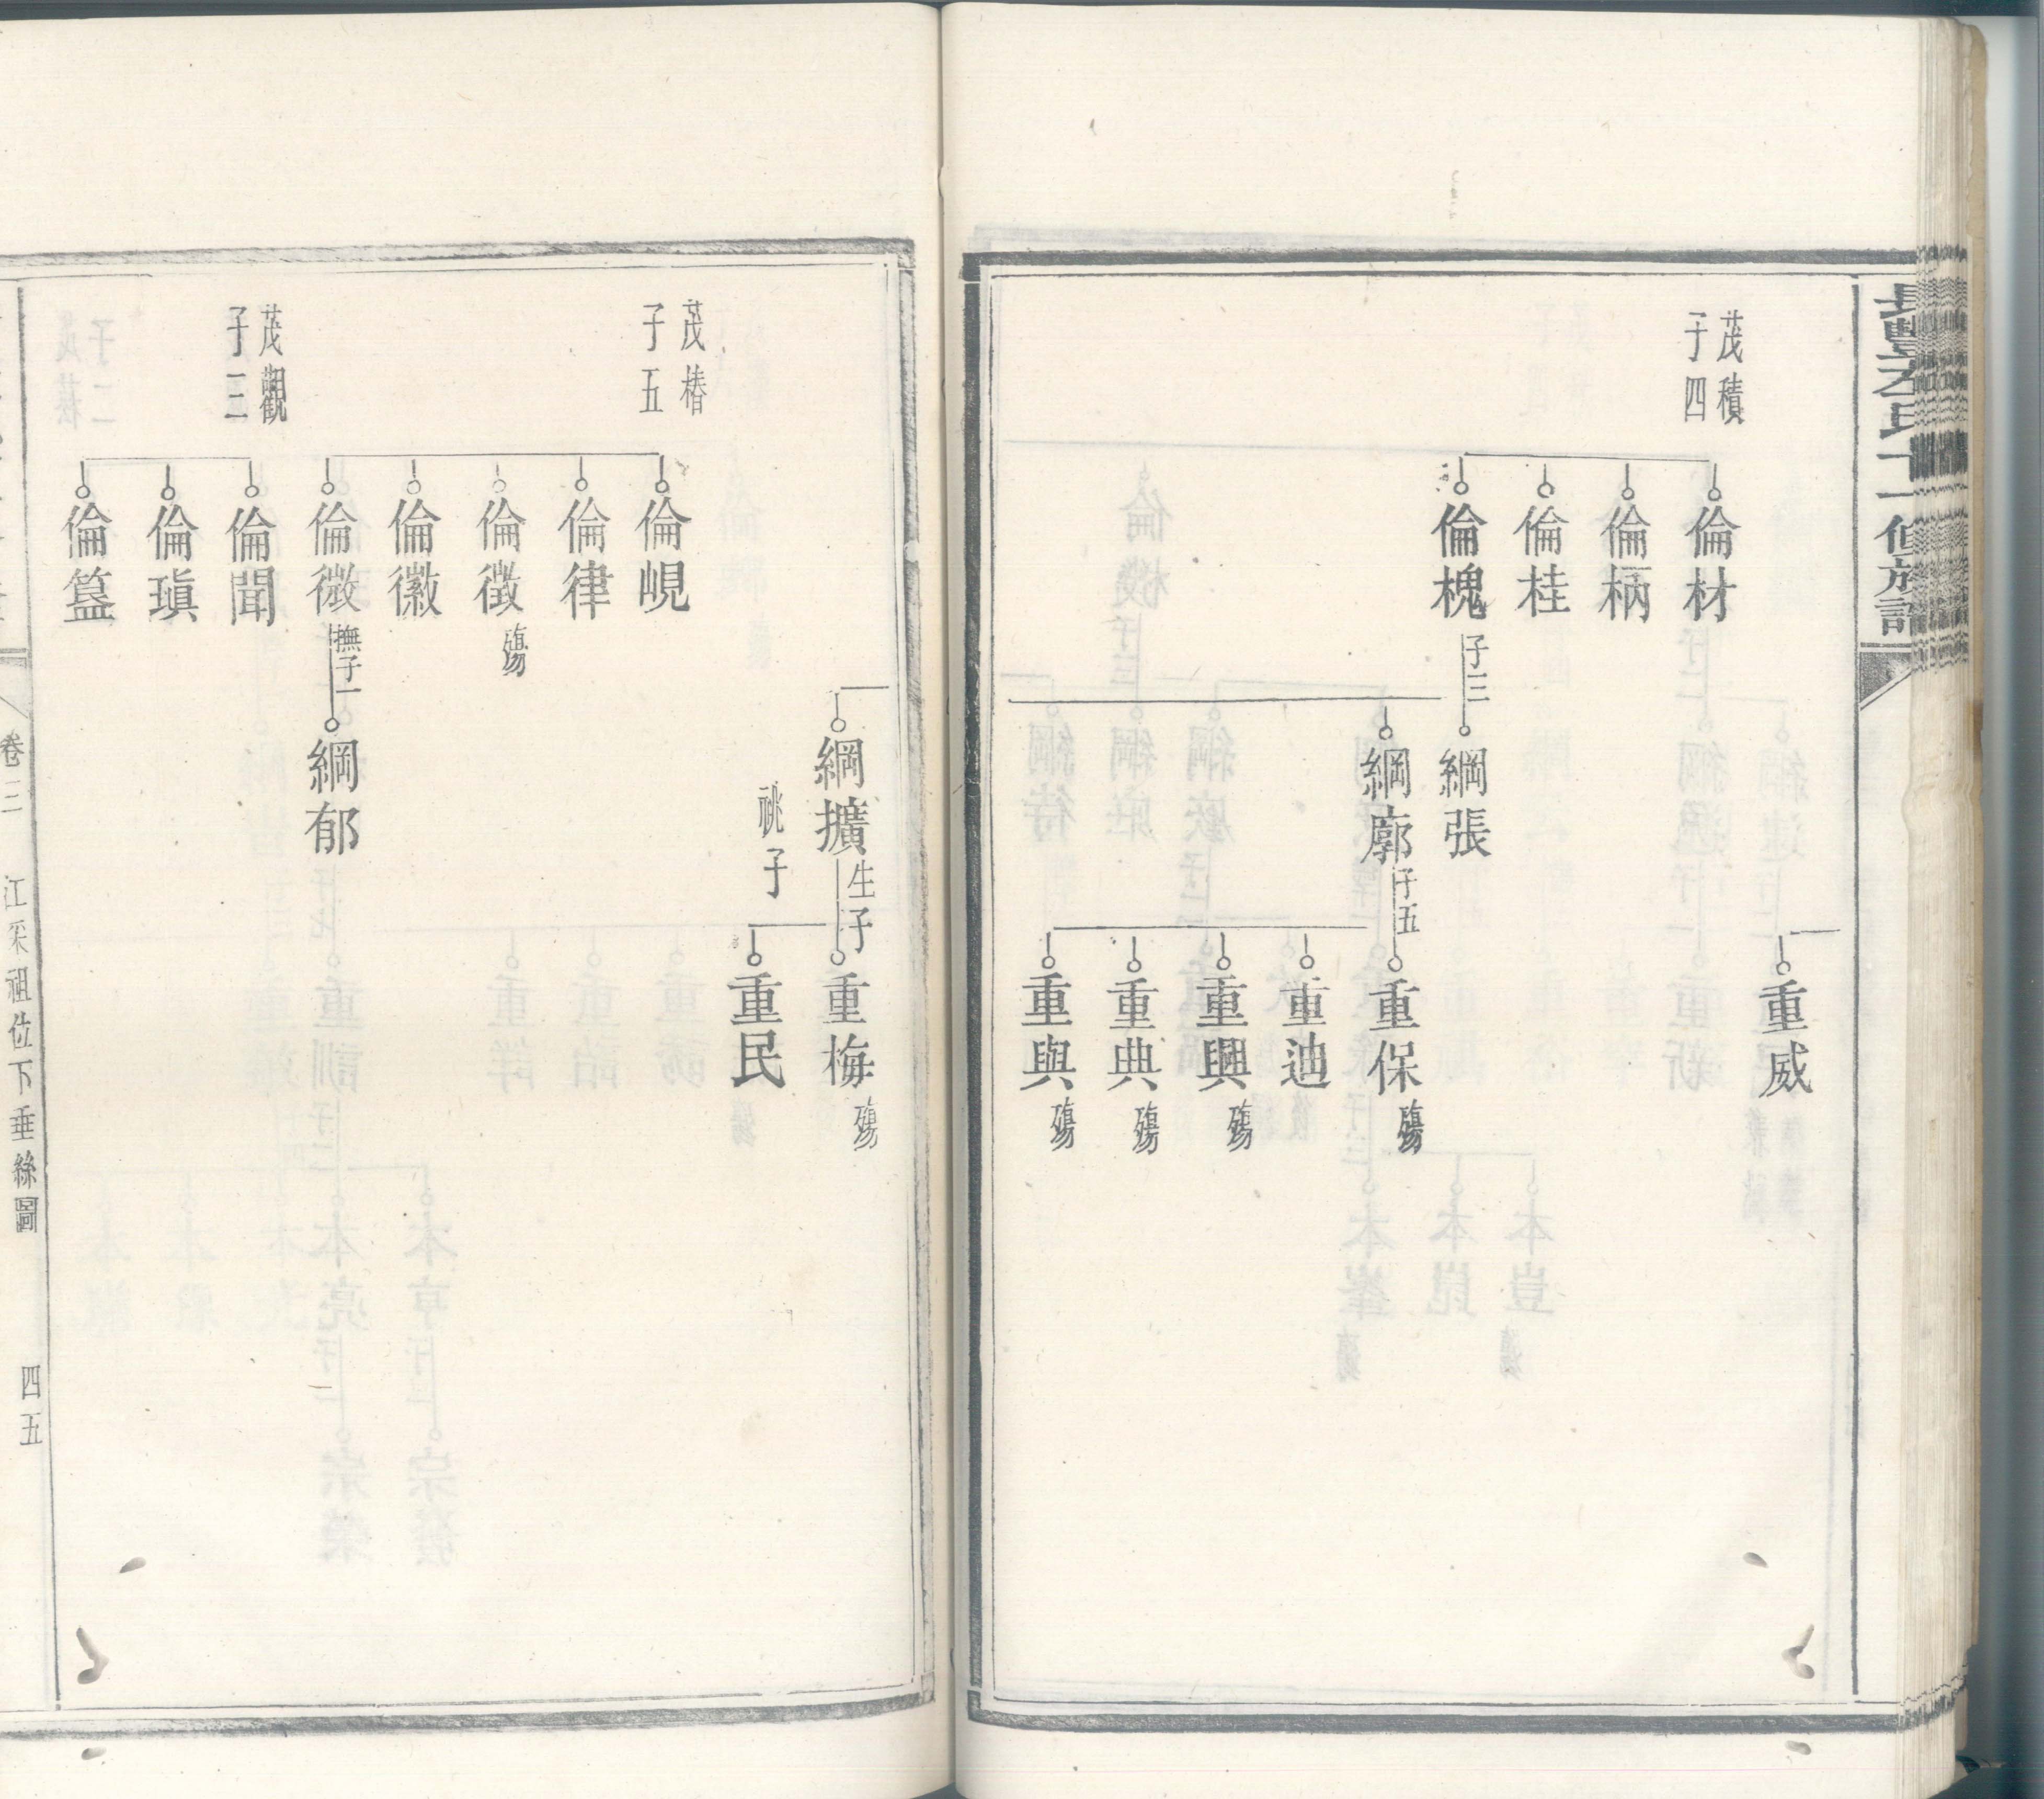 長豐左氏十一修族譜
茂積
子四
倫材
倫柄
倫桂
倫槐
子三
綱張
綱廓
子五
重威
重保
殤
重迪
重興
殤
重典
殤
重與
殤
綱擴
生子
祧子
重梅
殤
重民
茂椿
子五
倫峴
倫律
倫徵
殤
倫徽
倫微
撫子一
綱郁
茂觀
子三
倫聞
倫瑱
倫簋
卷三
江采祖位下垂絲圖
四五